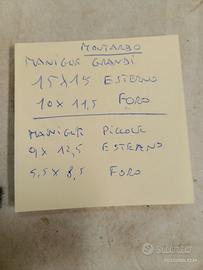 MONTARBO
MANIGLIE GRANDI
15X15 ESTERNO
10X 11,5 FORO
MANIGLIE PICCOLE
9X 12,5 ESTERNO
5,5X 8,5 FORO
SUBITO